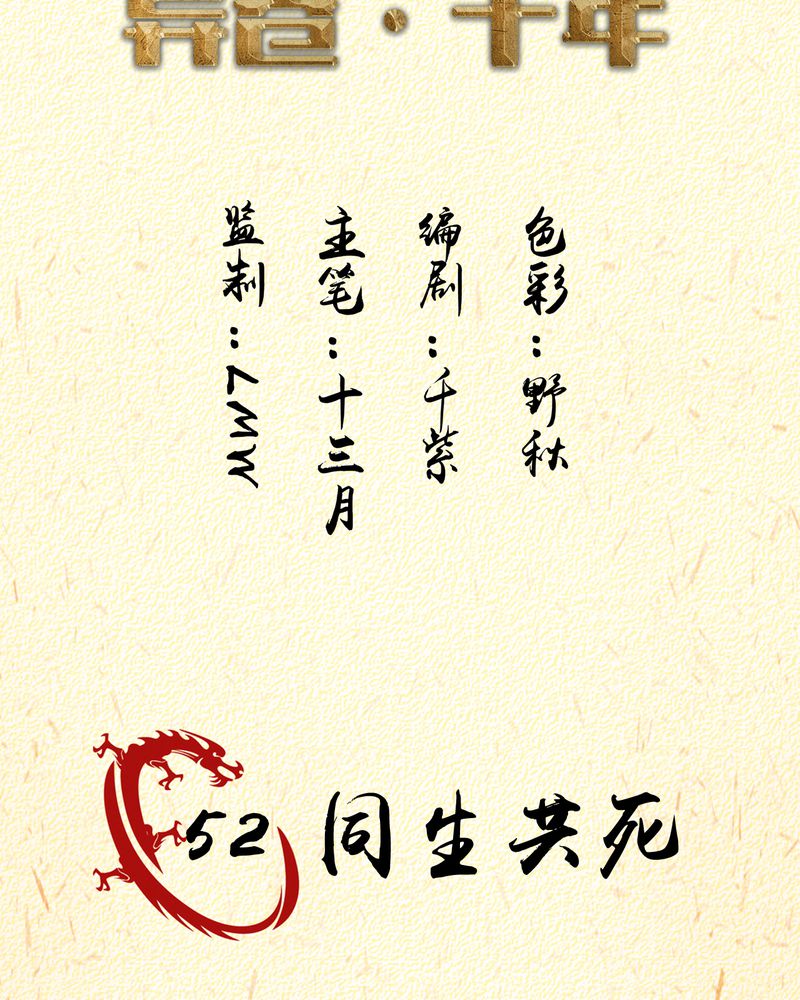 千年
监制：MW7
主笔：十三月
编剧：千紫
色彩：野秋
52 同生共死